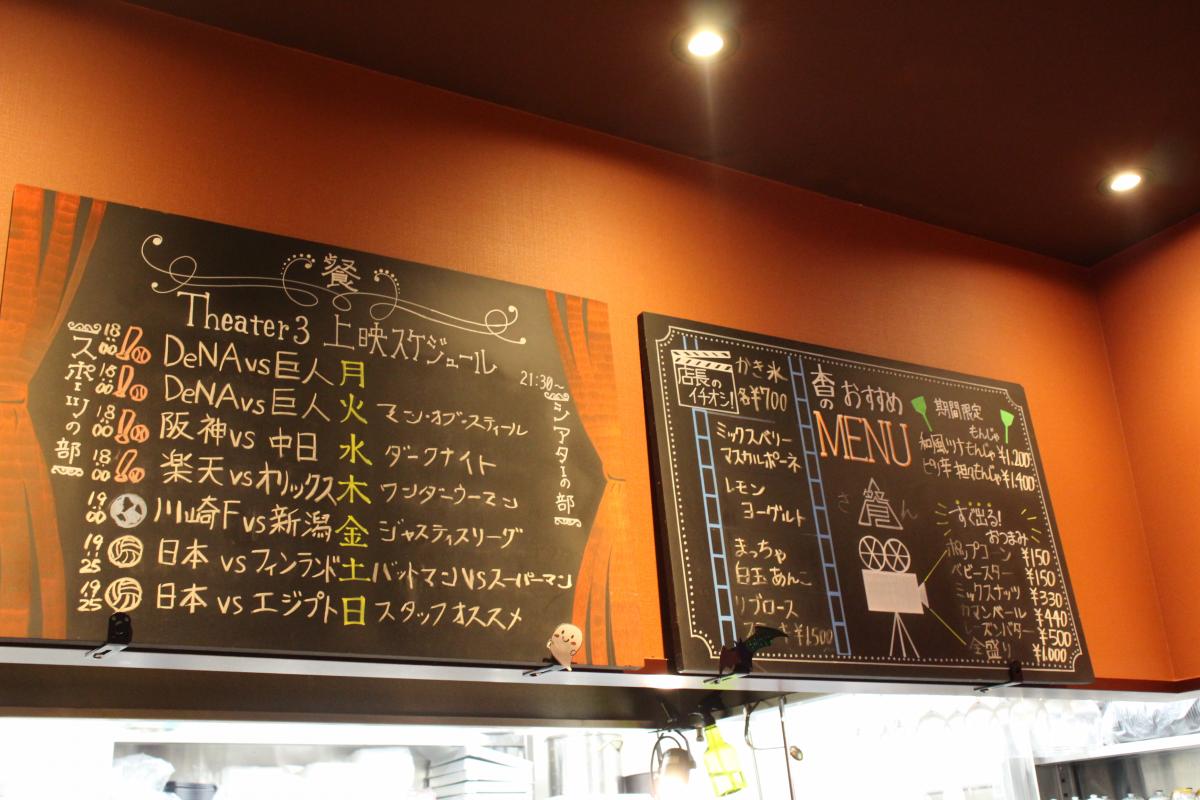 餐
Theater3 上映スケジュール
スポーツの部
21:30~
シアターの部
18:00 DeNA vs 巨人 月
18:00 DeNA vs 巨人 火 マン・オブ・スティール
18:00 阪神 vs 中日 水 ダークナイト
18:00 楽天 vs オリックス 木 ワンダーウーマン
19:00 川崎F vs 新潟 金 ジャスティスリーグ
19:25 日本 vs フィンランド 土 バットマン VS スーパーマン
19:25 日本 vs エジプト 日 スタッフオススメ
店長の
イチオシ!
かき氷
各¥700
ミックスベリー
マスカルポーネ
レモン
ヨーグルト
まっちゃ
白玉あんこ
リブロース
¥1500
おすすめ
MENU
期間限定
もんじゃ
和風ツナもんじゃ ¥1,200
ピリ辛 担々もんじゃ ¥1,400
さ餐ん
すぐ出る!
おつまみ
ポップコーン ¥150
ベビースター ¥150
ミックスナッツ ¥330
カマンベール ¥440
ズンバター ¥500
全盛り ¥1,000